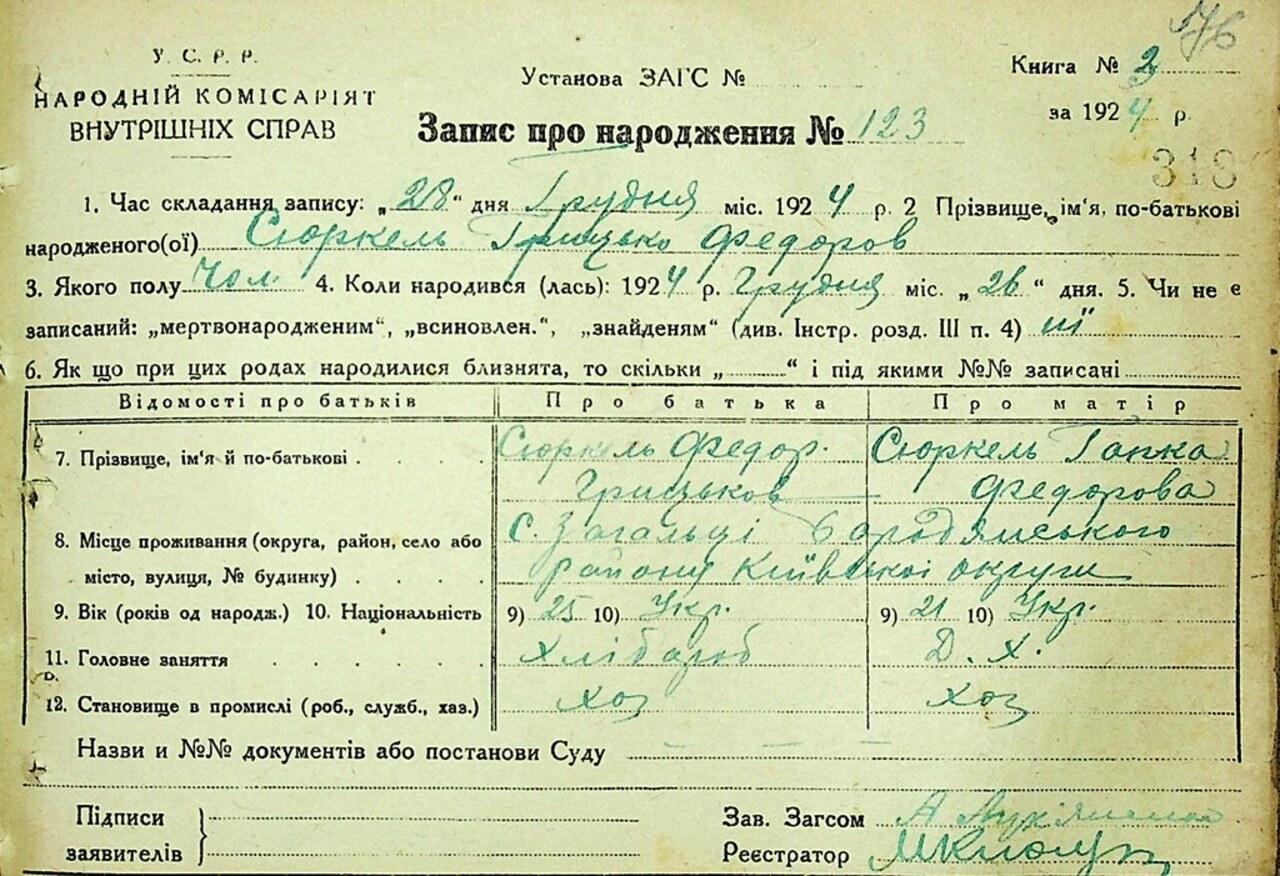 176
У. С. Р. Р.
НАРОДНІЙ КОМІСАРІЯТ
ВНУТРІШНІХ СПРАВ
Установа ЗАГС №
Книга № 3
за 1924 р.
Запис про народження № 123
318
1. Час складання запису: „28“ дня Грудня міс. 1924 р. 2 Прізвище, ім‘я, по-батькові
народженого(ої) Сюркель Грицько Федоров
3. Якого полу Чол. 4. Коли народився (лась): 1924 р. Грудня міс. „26“ дня. 5. Чи не є
записаний: „мертвонародженим“, „всиновлен.“, „знайденям“ (див. Інстр. розд. III п. 4) ні
6. Як що при цих родах народилися близнята, то скільки „ “ і під якими №№ записані
Відомості про батьків Про батька Про матір
7. Прізвище, ім‘я й по-батькові Сюркель Федор. Сюркель Гапка
Грицьков Федорова
8. Місце проживання (округа, район, село або с. Загальці Бородянського
місто, вулиця, № будинку) району Київської округи
9. Вік (років од народж.) 10. Національність 9) 25 10) Укр. 9) 21 10) Укр.
11. Головне заняття Хлібороб Д. Х.
12. Становище в промислі (роб., служб., хаз.) хоз хоз
Назви и №№ документів або постанови Суду
Підписи
заявителів
Зав. Загсом А
Реєстратор